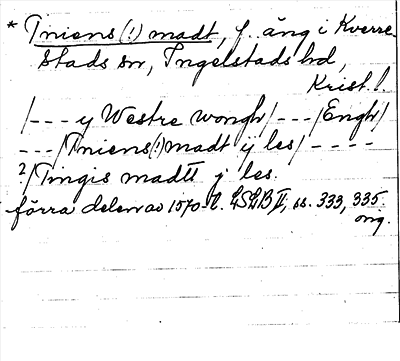 * Tniens (!) madt, f. äng i Kverre-
stads sn, Ingelstads hd,
Krist. l.
/--- y Westre wongh/ --- /Engh/
--- /Tniens (!) madt ij les/ ----
2/ Tingis madtt j les.
förra delen av 1570-t. LSLB II, ss. 333, 335.
orig.